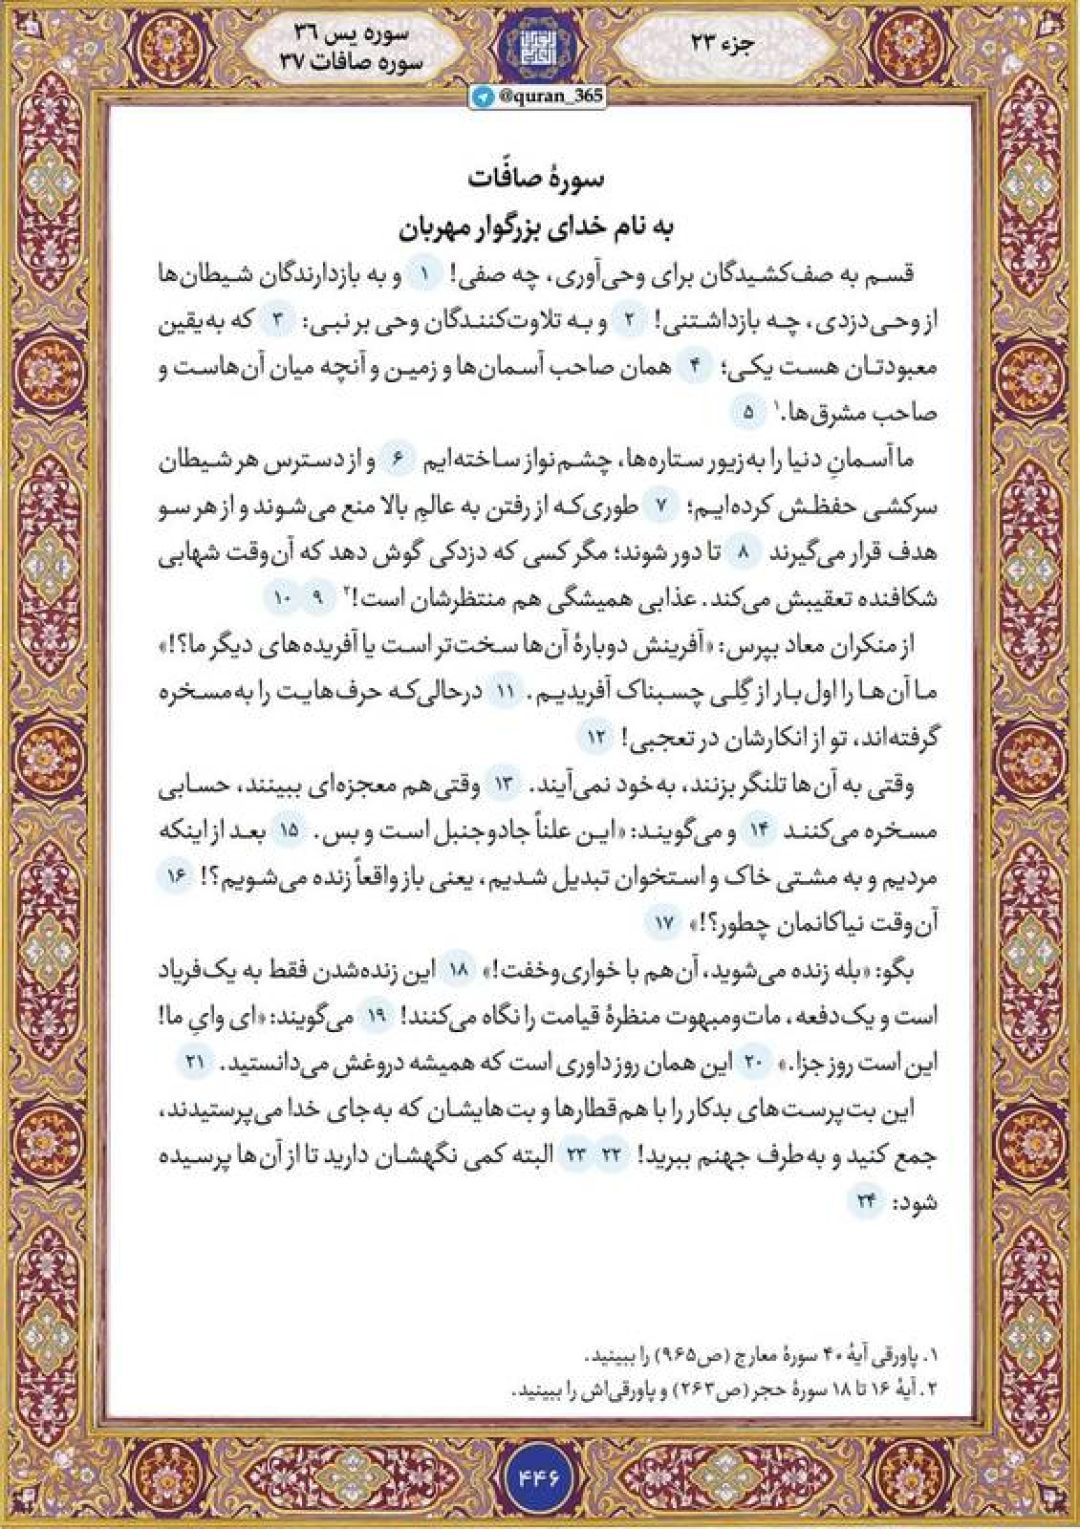 جزء ۲۳
سوره یس ۳۶
سوره صافات ۳۷
@quran_365
سورهٔ صافّات
به نام خدای بزرگوار مهربان
قسم به صف‌کشیدگان برای وحی‌آوری، چه صفی! ۱ و به بازدارندگان شیطان‌ها
از وحی‌دزدی، چه بازداشتنی! ۲ و به تلاوت‌کنندگان وحی بر نبی: ۳ که به‌یقین
معبودتان هست یکی؛ ۴ همان صاحب آسمان‌ها و زمین و آنچه میان آن‌هاست و
صاحب مشرق‌ها.۱ ۵
ما آسمانِ دنیا را به زیور ستاره‌ها، چشم‌نواز ساخته‌ایم ۶ و از دسترس هر شیطان
سرکشی حفظش کرده‌ایم؛ ۷ طوری‌که از رفتن به عالمِ بالا منع می‌شوند و از هر سو
هدف قرار می‌گیرند ۸ تا دور شوند؛ مگر کسی که دزدکی گوش دهد که آن‌وقت شهابی
شکافنده تعقیبش می‌کند. عذابی همیشگی هم منتظرشان است!۲ ۹ ۱۰
از منکران معاد بپرس: «آفرینش دوبارهٔ آن‌ها سخت‌تر است یا آفریده‌های دیگر ما؟!»
ما آن‌ها را اول‌بار از گِلی چسبناک آفریدیم. ۱۱ درحالی‌که حرف‌هایت را به‌مسخره
گرفته‌اند، تو از انکارشان در تعجبی! ۱۲
وقتی به آن‌ها تلنگر بزنند، به‌خود نمی‌آیند. ۱۳ وقتی‌هم معجزه‌ای ببینند، حسابی
مسخره می‌کنند ۱۴ و می‌گویند: «این علناً جادوجنبل است و بس. ۱۵ بعد از اینکه
مردیم و به مشتی خاک و استخوان تبدیل شدیم، یعنی باز واقعاً زنده می‌شویم؟! ۱۶
آن‌وقت نیاکانمان چطور؟!» ۱۷
بگو: «بله زنده می‌شوید، آن‌هم با خواری‌وخفت!» ۱۸ این زنده‌شدن فقط به یک‌فریاد
است و یک‌دفعه، مات‌ومبهوت منظرهٔ قیامت را نگاه می‌کنند! ۱۹ می‌گویند: «ای وایِ ما!
این است روز جزا.» ۲۰ این همان روز داوری است که همیشه دروغش می‌دانستید. ۲۱
این بت‌پرست‌های بدکار را با هم‌قطارها و بت‌هایشان که به‌جای خدا می‌پرستیدند،
جمع کنید و به‌طرف جهنم ببرید! ۲۲ ۲۳ البته کمی نگهشان دارید تا از آن‌ها پرسیده
شود: ۲۴
۱. پاورقی آیهٔ ۴۰ سورهٔ معارج (ص۹۶۵) را ببینید.
۲. آیهٔ ۱۶ تا ۱۸ سورهٔ حجر (ص۲۶۳) و پاورقی‌اش را ببینید.
۴۴۶